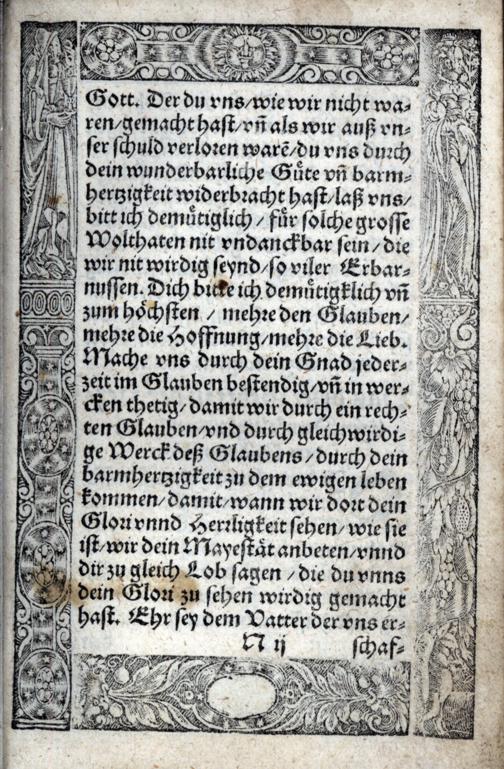 Gott. Der du vns/wie wir nicht wa-
ren/gemacht hast/vñ als wir auß vn-
ser schuld verloren warẽ/du vns durch
dein wunderbarliche Gůte vñ barm-
hertzigkeit widerbracht hast/laß vns/
bitt ich demůtiglich/für solche grosse
Wolthaten nit vndanckbar sein/die
wir nit wirdig seynd/so viler Erbar-
nussen. Dich bitte ich demůtigklich vñ
zum höchsten/mehre den Glauben/
mehre die Hoffnung/mehre die Lieb.
Mache vns durch dein Gnad jeder-
zeit im Glauben bestendig/vñ in wer-
cken thetig/damit wir durch ein rech-
ten Glauben/vnd durch gleichwirdi-
ge Werck deß Glaubens/durch dein
barmhertzigkeit zu dem ewigen leben
kommen/damit/wann wir dort dein
Glori vnnd Herrligkeit sehen/wie sie
ist/wir dein Mayestät anbeten/vnnd
dir zu gleich Lob sagen/die du vnns
dein Glori zu sehen wirdig gemacht
hast. Ehr sey dem Vatter der vns er-
N ij schaf-